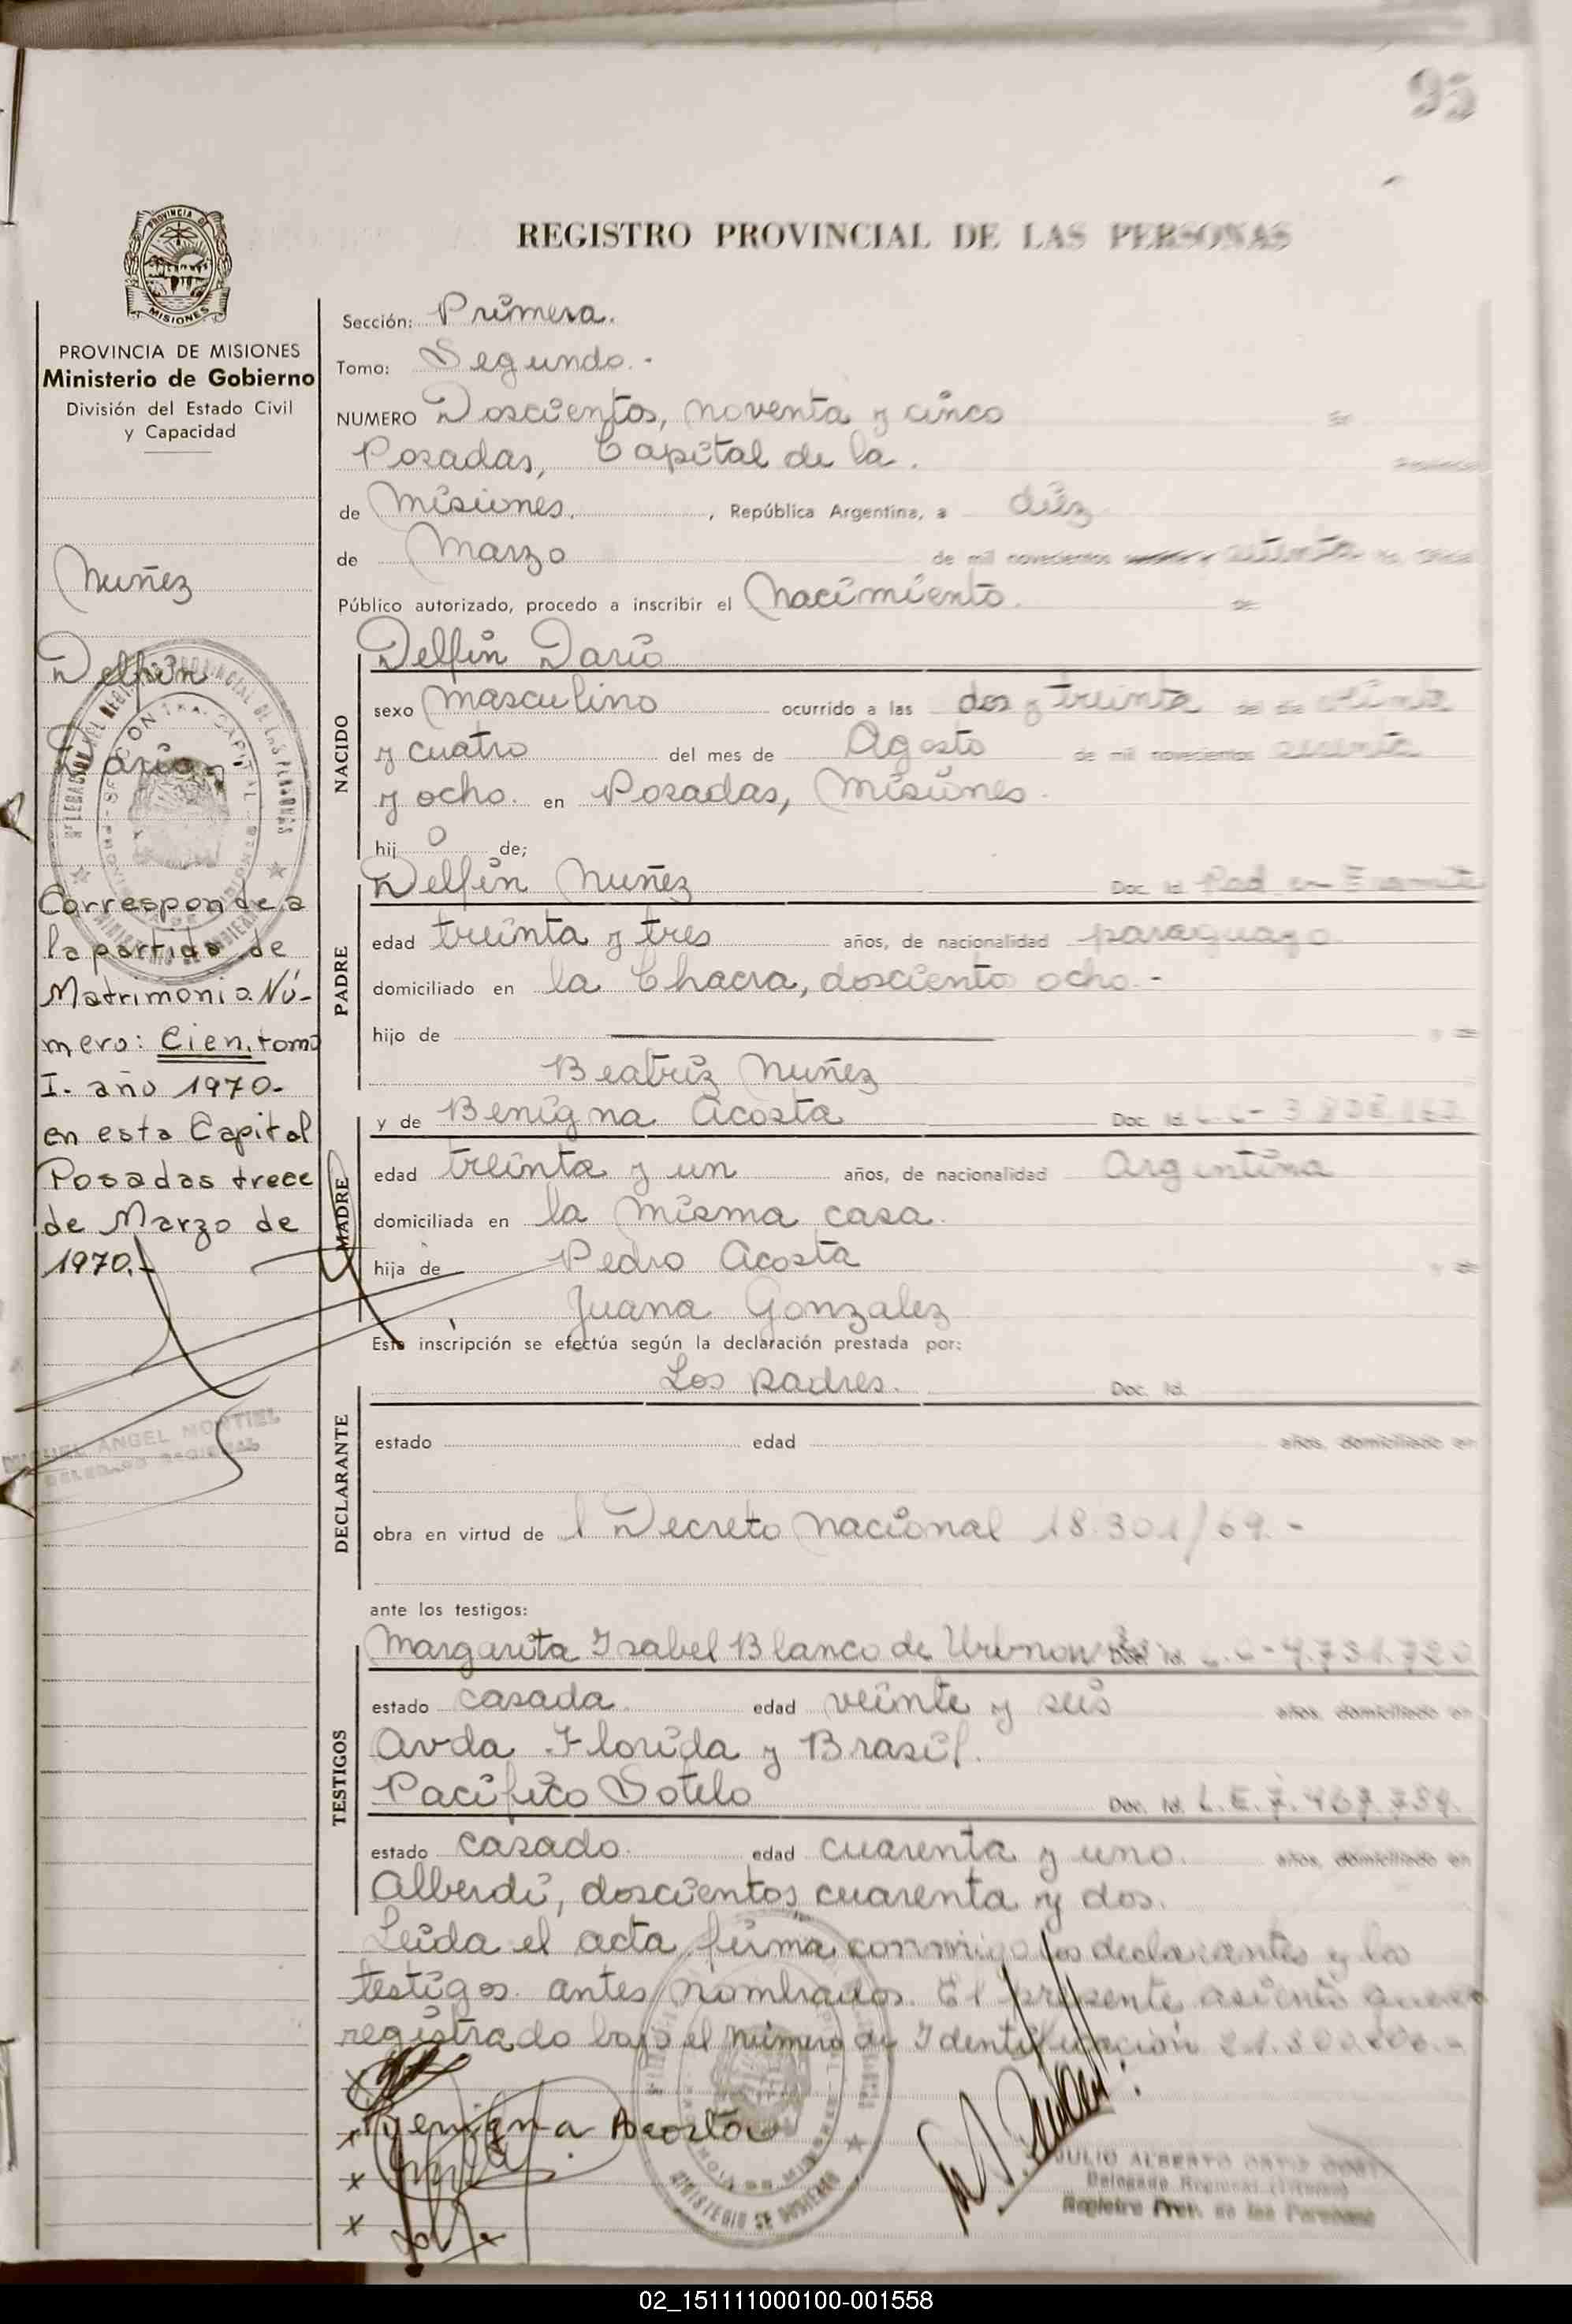 95
REGISTRO PROVINCIAL DE LAS PERSONAS
PROVINCIA DE
MISIONES
PROVINCIA DE MISIONES
Ministerio de Gobierno
División del Estado Civil
y Capacidad
Nuñez
Delfin
Dario.-
Corresponde a
la partida de
Matrimonio Nú-
mero: Cien, tomo
I- año 1970-
en esta Capital
Posadas trece
de Marzo de
1970.-
MIGUEL ANGEL MONTIEL
DELEGADO REGIONAL
Sección: Primera.
Tomo: Segundo.-
NUMERO Doscientos, noventa y cinco En
Posadas, Capital de la. Provincia
de Misiones, , República Argentina, a diez
de Marzo de mil novecientos setenta Yo, Oficial
Público autorizado, procedo a inscribir el Nacimiento. de
NACIDO
Delfin Dario
sexo masculino ocurrido a las dos y treinta del día veinte
y cuatro del mes de Agosto de mil novecientos sesenta
y ocho. en Posadas, Misiones.
hij o de;
PADRE
Delfin Nuñez Doc. Id. Rad en Tramite
edad treinta y tres años, de nacionalidad paraguayo
domiciliado en la Chacra, dosciento ocho.-
hijo de y de
Beatriz Nuñez
MADRE
y de Benigna Acosta Doc. Id. L.C-
edad treinta y un años, de nacionalidad Argentina
domiciliada en la misma casa.
hija de Pedro Acosta y de
Juana Gonzalez
Esta inscripción se efectúa según la declaración prestada por:
DECLARANTE
Los padres. Doc. Id.
estado edad años, domiciliado en
obra en virtud de l Decreto Nacional 18.301/69.-
ante los testigos:
TESTIGOS
Margarita Isabel Blanco de Doc. Id. L.C-4.731.720
estado casada. edad veinte y seis años, domiciliado en
Avda Florida y Brasil.
Pacifico Sotelo Doc. Id. L.E.7.467.739.
estado casado. edad cuarenta y uno. años, domiciliado en
Alberdi, doscientos cuarenta y dos.
Leida el acta, firma conmigo los declarantes y los
testigos antes nombrados. El presente asiento queda
registrado bajo el número de Identificación
x
x Benigna Acosta
x
x
JULIO ALBERTO ORTIZ
Delegado Regional (Titular)
Registro Prov. de las Personas
02_151111000100-001558